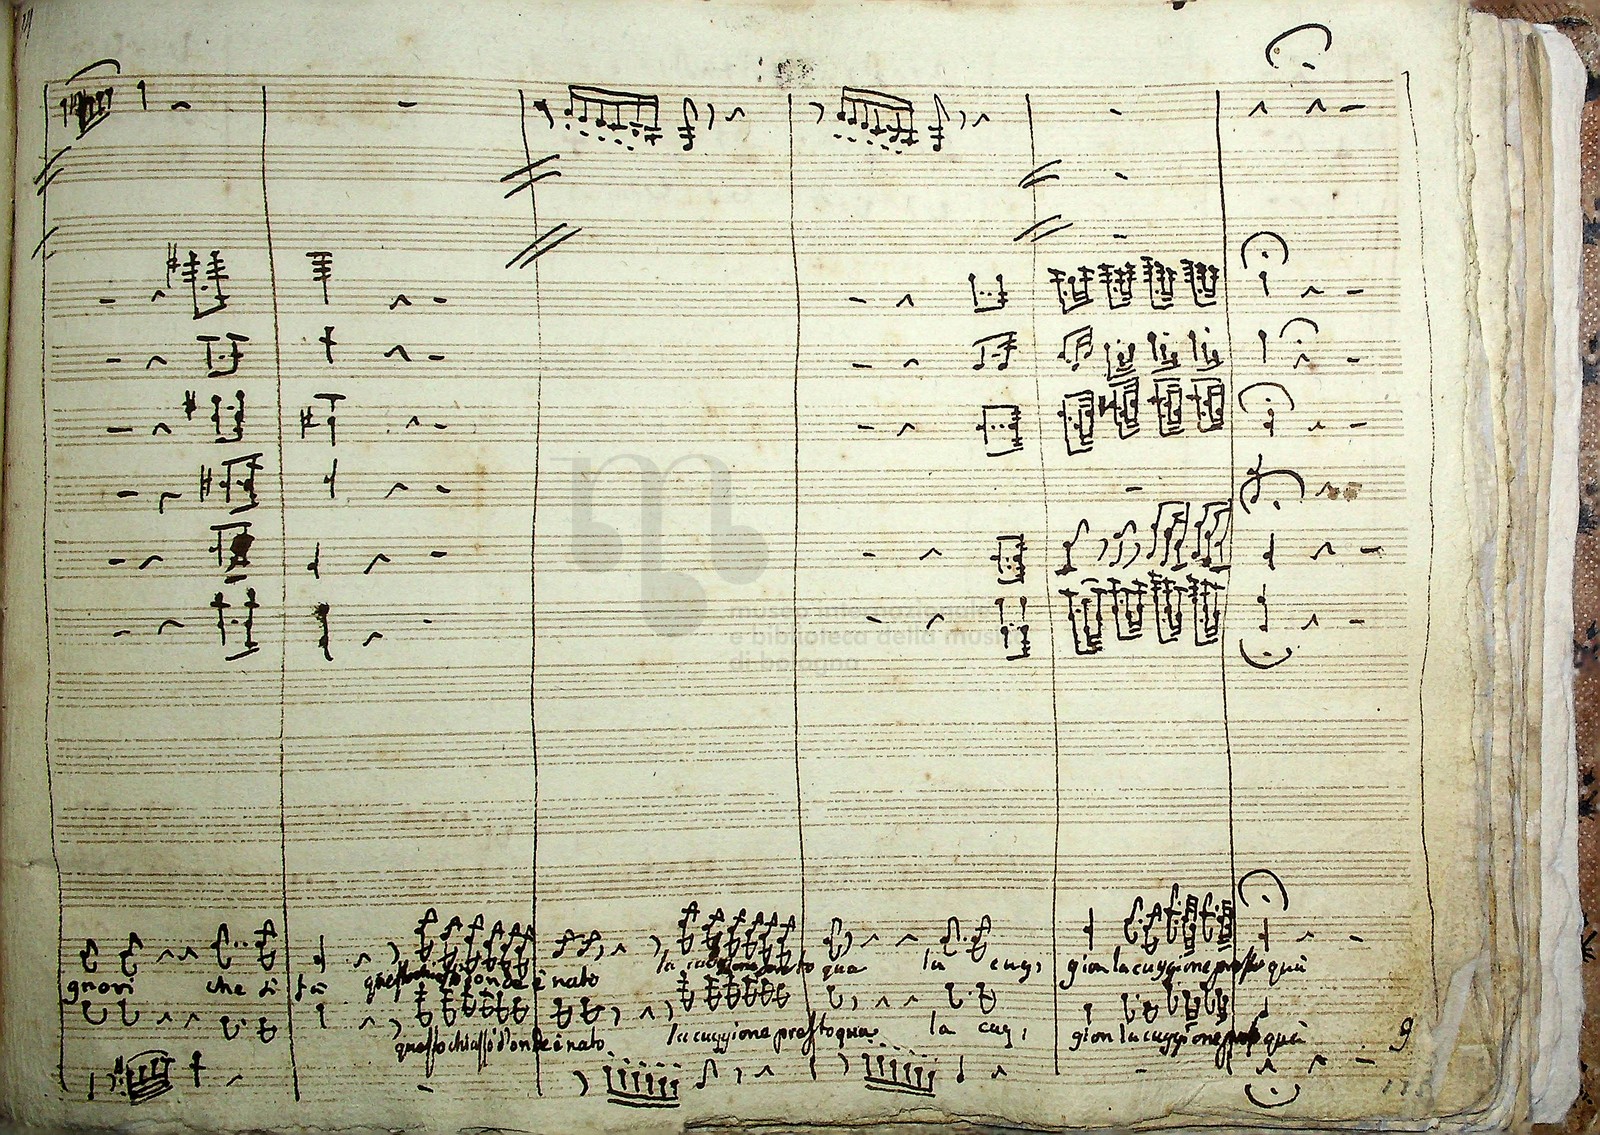 museo internazionale
e biblioteca della musica
di bologna
gnori che si fà questo chiasso d'onde è nato la cuggione presto qua la cug, gion la cuggione presto quà
questo chiasso d'onde è nato la cuggione presto qua la cug, gion la cuggione presto quà
9